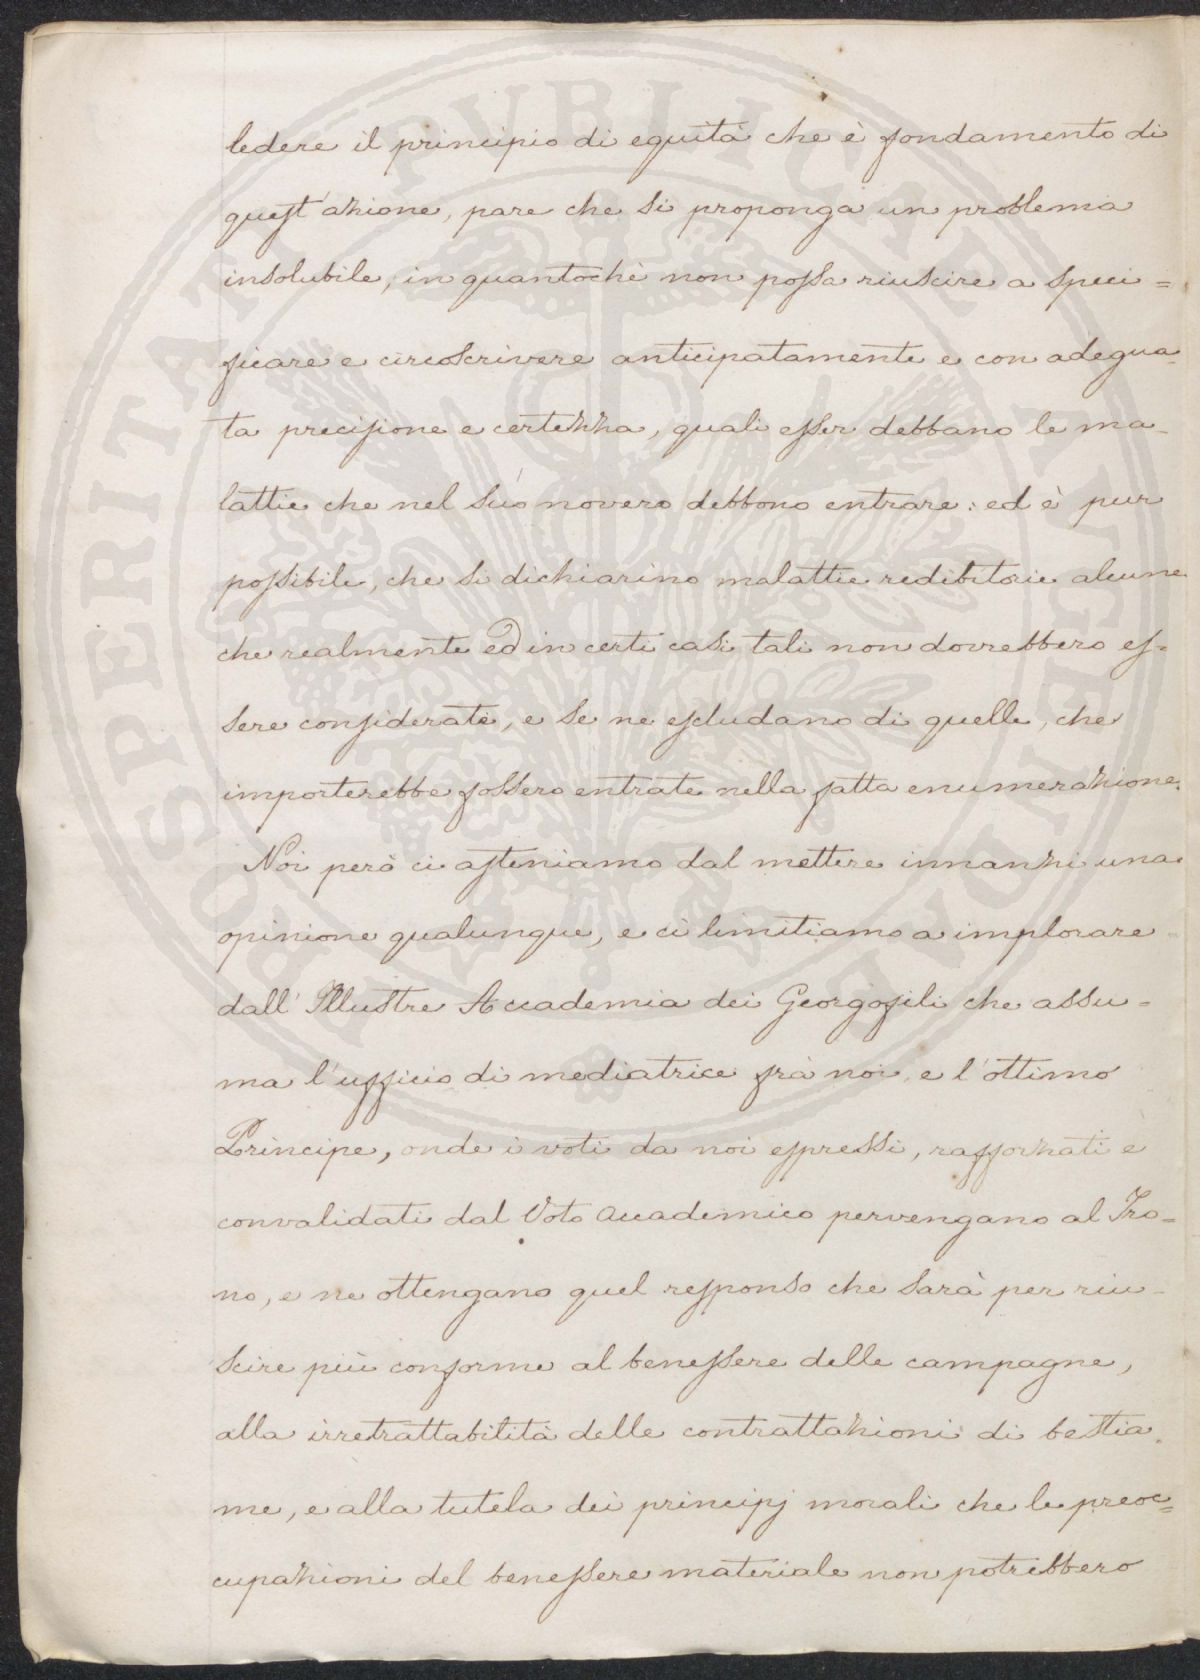 ledere il principio di equità che è fondamento di
quest'azione, pare che si proponga un problema
insolubile, in quantochè non possa riuscire a speci=
ficare e circoscrivere anticipatamente e con adegua-
ta precisione e certezza, quali esser debbano le ma-
lattie che nel suo novero debbono entrare: ed è pur
possibile, che si dichiarino malattie redibitorie alcune
che realmente ed in certi casi tali non dovrebbero es-
sere considerate, e se ne escludano di quelle, che
importerebbe fossero entrate nella fatta enumerazione.
Noi però ci asteniamo dal mettere innanzi una
opinione qualunque, e ci limitiamo a implorare
dall'Illustre Accademia dei Georgofili che assu-
ma l'ufficio di mediatrice frà noi, e l'ottimo
Principe, onde i voti da noi espressi, rafforzati e
convalidati dal Voto accademico pervengano al Tro=
no, e ne ottengano quel responso che sarà per riu-
scire più conforme al benessere delle campagne,
alla irretrattabilità delle contrattazioni di bestia-
me, e alla tutela dei principj morali che le preoc=
cupazioni del benessere materiale non potrebbero
PROSPERITATI PVBLICAE AVGENDAE